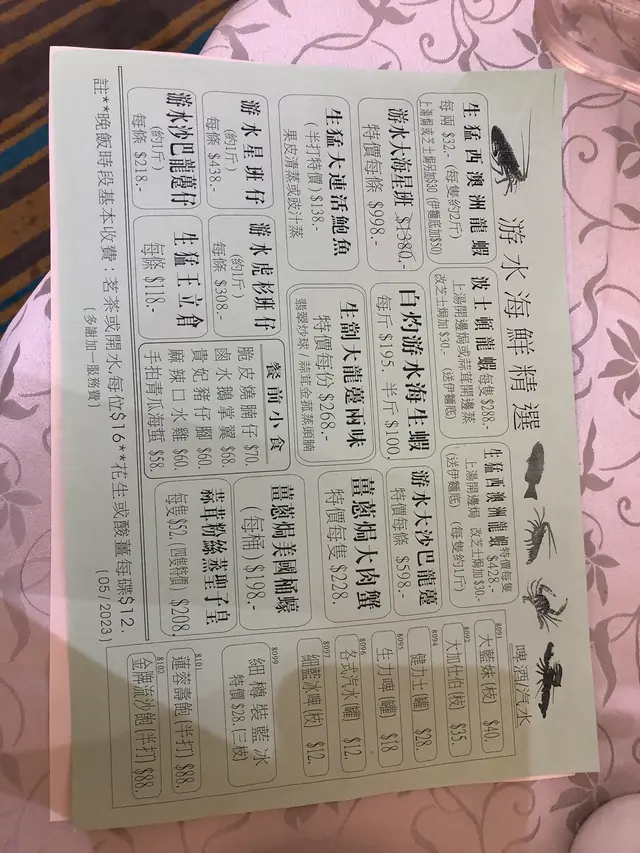 游水海鮮精選
生猛西澳洲龍蝦
每兩 $32.- (每隻約2斤)
上湯焗或芝士焗另加$30 (伊麵底加$50)
波士頓龍蝦 每隻 $288.-
上湯開邊焗或蒜茸開邊蒸
改芝士焗加 $30.- (送伊麵底)
生猛西澳洲龍蝦 特價每隻 $428.-
上湯開邊焗 改芝士焗加 $30.-
(送伊麵底) (每隻約1斤)
游水大海星班 $1380.-
特價每條 $998.-
白灼游水海生蝦
每斤 $195. 半斤 $100.
游水大沙巴龍躉
特價每條 $598.-
生猛大連活鮑魚
(半打特價) $138.-
果皮清蒸或豉汁蒸
生劏大龍躉兩味
特價每份 $268.-
翡翠炒球/蒜茸金菰蒸頭腩
薑蔥焗大肉蟹
特價每隻 $228.
游水星班仔
(約1斤)
每條 $438.-
游水虎杉班仔
(約1斤)
每條 $308.-
餐前小食
脆皮燒腩仔 $70.
鹵水鵝掌翼 $68.
貴妃豬仔腳 $60.
麻辣口水雞 $60.
手拍青瓜海蜇 $58.
薑蔥焗美國桶蠔
(每桶) $198.-
游水沙巴龍躉仔
(約1斤)
每條 $218.-
生猛王立倉
每條 $118.-
蒜茸粉絲蒸聖子皇
每隻 $52. (四隻特價) $208.
註**晚飯時段基本收費：茗茶或開水,每位$16**花生或酸薑每碟$12.
(多謝加一服務費)
(05/2023)
啤酒/汽水
8091
大藍妹 (枝) $40.
8092
大加仕伯 (枝) $35.
8094
健力士 (罐) $28.
8095
生力啤 (罐) $18
8096
各式汽水 (罐) $12.
8097
細藍冰啤 (枝) $12.
8099
細樽裝藍冰
特價 $28. (三枝)
8101
蓮蓉壽飽 (半打) $88.
8102
金牌流沙飽 (半打) $88.